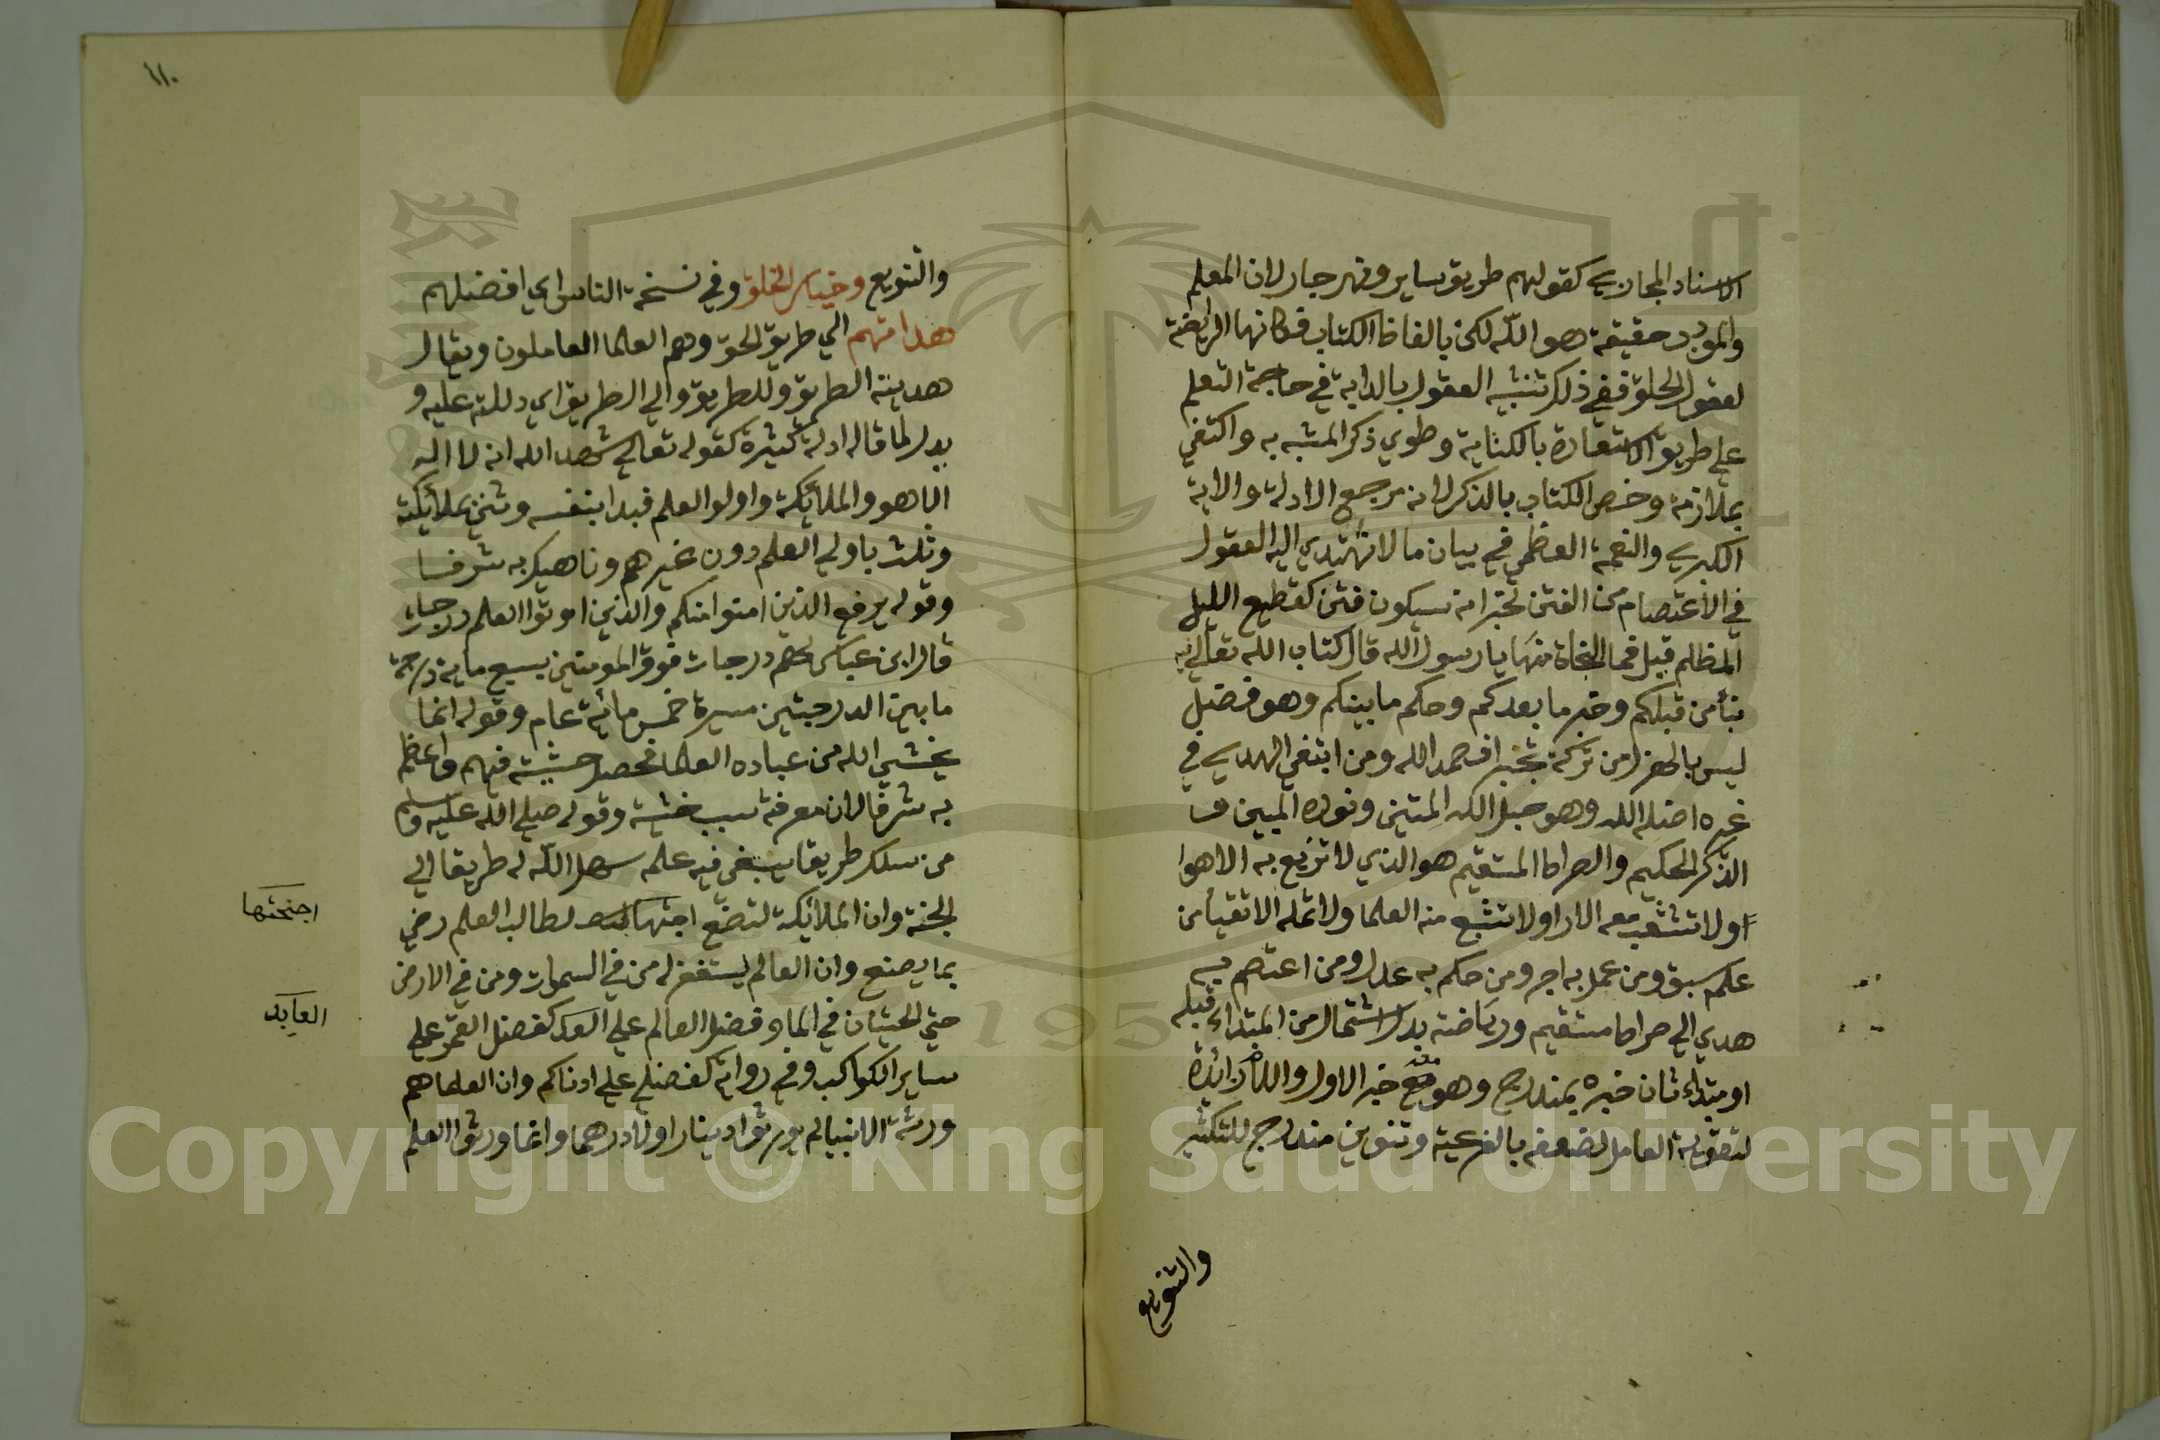 الاسناد المجازي كقولهم طريق ساير ونهر جار لان المعلم
والمودب حقيقة هو الله لكن بالفاظ الكتاب فكانها الرايضة
لعقول الخلق ففي ذلك تشبيه العقول بالدابة في حاجة التعلم
على طريق الاستعارة بالكناية وطوي ذكر المشبه به واكتفي
بملازمه وخص الكتاب بالذكر لانه مرجع الادلة والاية
الكبري والنعمة العظمي في بيان ما لا تهتدي اليه العقول
في الاعتصام من الفتن لخبر انه سيكون فتن كقطيع الليل
المظلم قيل فما النجاة منها يا رسول الله قال كتاب الله تعالي فيه
نبأ من قبلكم وخبر ما بعدكم وحكم ما بينكم وهو فصل
ليس بالهزل من تركه تجبرا قصمه الله ومن ابتغي الهدي في
غيره اضله الله وهو حبل الله المتين ونوره المبين و
الذكر الحكيم والصراط المستقيم هو الذي لا تزيغ به الاهوا
ولا تتشعب معه الارا ولا تشبع منه العلما ولا تمله الاتقيا من
علمه سبق ومن عمل به اجر ومن حكم به عدل ومن اعتصم به
هدي الي صراط مستقيم ورياضة بدل اشتمال من المبتداء قبله
او مبتداء ثان خبره بمندرج وهو مع خبر الاول واللام زائدة
لتقوية العامل لضعفه بالفرعية وتنوين مندرج للتكثير
والتنويع
١١٠
والتنويع وخيار الخلق وفي نسخة الناس اي افضلهم
هداتهم الي طريق الحق وهم العلما العاملون ويقال
هديته الطريق وللطريق والي الطريق اي دللته عليه و
يدل لما قاله ادلة كثيرة كقوله تعالي شهد الله انه لا اله
الا هو والملائكة واولوا العلم فبدا بنفسه وثني بملائكته
وثلث باولي العلم دون غيرهم وناهيك به شرفا
وقوله يرفع الذين امنوا منكم والذين اوتوا العلم درجات
قال ابن عباس لهم درجات فوق المومنين بسبع ماية درجة
ما بين الدرجتين مسيرة خمس مائة عام وقوله انما
يخشي الله من عباده العلما فحصر خشيته فيهم واعظم
به شرفا لان معرفته سبب خشيته وقوله صلي الله عليه وسلم
من سلك طريقا يبتغي فيه علما سهل الله له طريقا الي
الجنة وان الملائكة لتضع اجنتها لطالب العلم رضي
بما يصنع وان العالم ليستغفر له من في السموات ومن في الارض
حتي الحيتان في الما وفضل العالم علي العبد كفضل القمر علي
ساير الكواكب وفي رواية كفضلي علي ادناكم وان العلما هم
ورثة الانبيا لم يورثوا دينارا ولا درهما وانما ورثوا العلم
اجنحتها
العابد
Copyright © King Saud University
1957